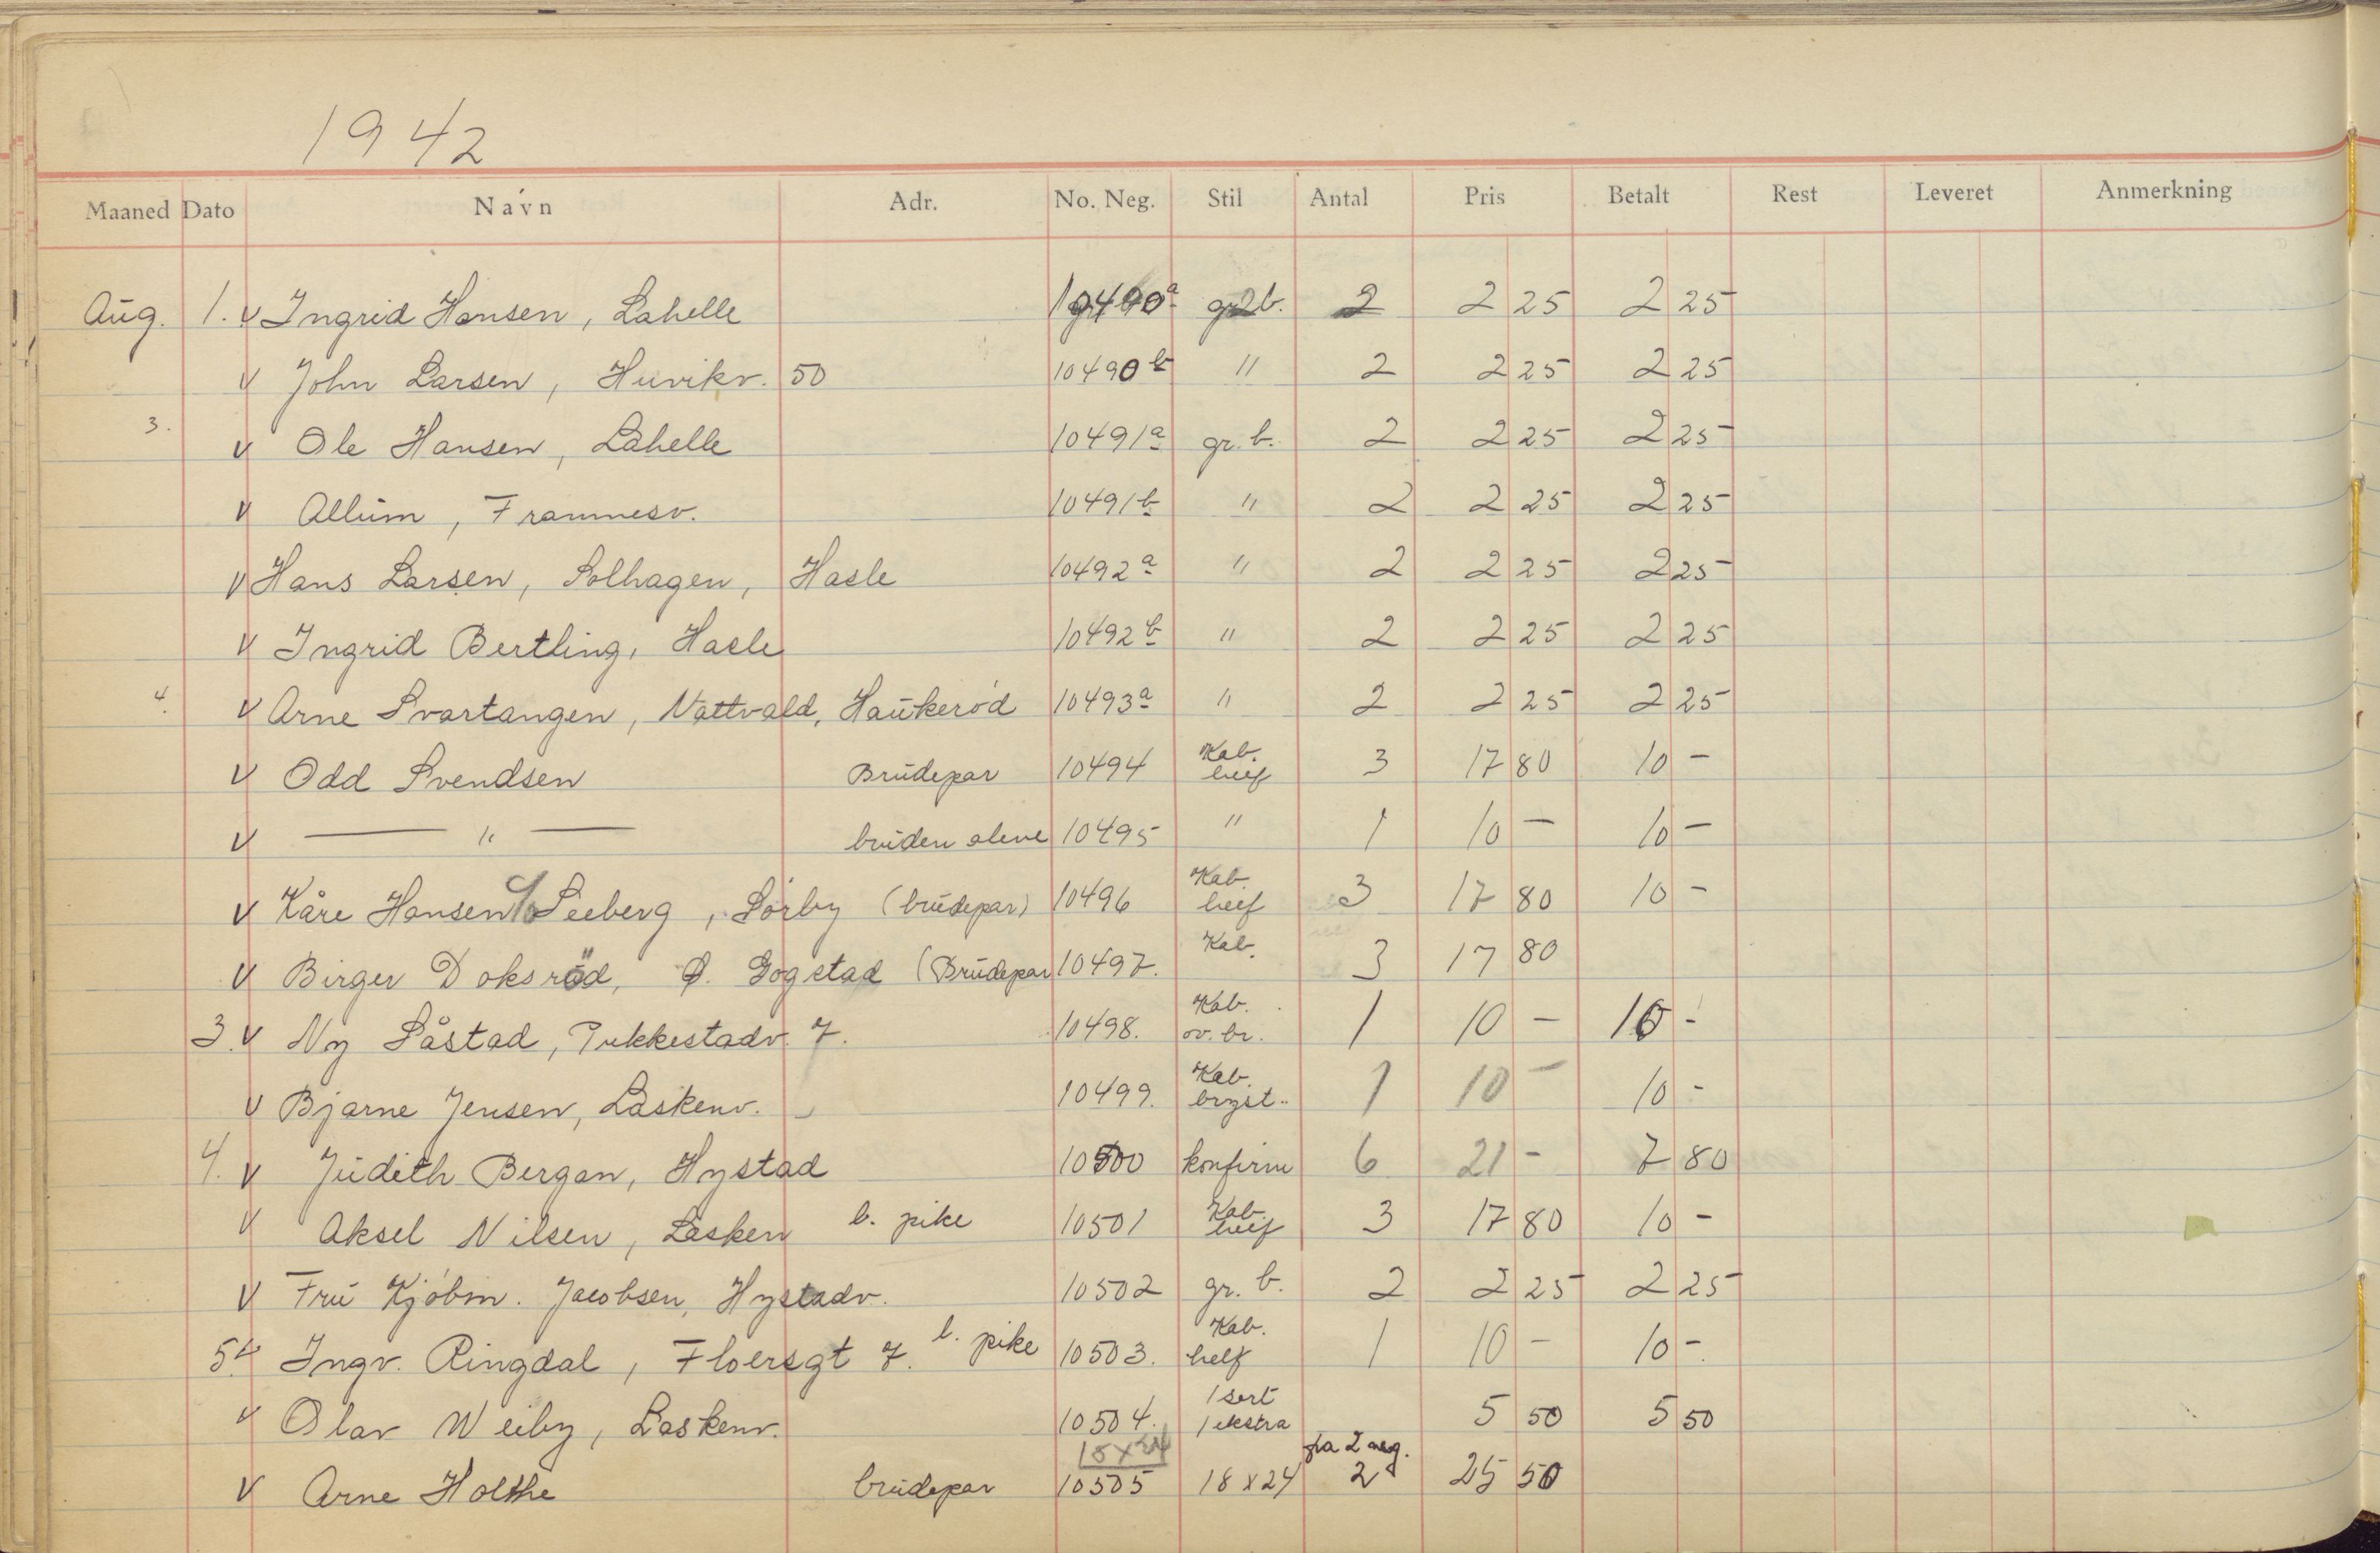 1942
Maaned Dato Navn Adr. No. Neg. Stil Antal Pris Betalt Rest Leveret Anmerkning
Aug. 1. v Ingrid Hansen, Lahelle 10490a gr. b. 2 2 25 2 25
v John Larsen, Huvikv. 50 10490b " 2 2 25 2 25
3. v Ole Hansen, Lahelle 10491a gr. b. 2 2 25 2 25
v Allum, Framnesv. 10491b " 2 2 25 2 25
v Hans Larsen, Solhagen, Hasle 10492a " 2 2 25 2 25
v Ingrid Bertling, Hasle 10492b " 2 2 25 2 25
4. v Arne Svartangen, Nattvald, Haukerød 10493a " 2 2 25 2 25
v Odd Svendsen Brudepar 10494 Kab. helf 3 17 80 10 -
v — " — bruden alene 10495 " 1 10 - 10 -
v Kåre Hansen c/o Seeberg, Sørby (brudepar) 10496 Kab. helf 3 17 80 10 -
v Birger Doksrød, Ø. Gogstad (Brudepar 10497. Kab. 3 17 80
3. v Ny Såstad, Pukkestadv. 7. 10498. Kab. ov. br. 1 10 - 10 -
v Bjarne Jensen, Laskenv. 10499. Kab. bryst.. 1 10 - 10 -
4. v Judith Bergan, Hystad 10500 konfirm 6 21 - 7 80
v Aksel Nilsen, Lasken b. pike 10501 Kab. helf 3 17 80 10 -
v Fru Kjøbm. Jacobsen, Hystadv. 10502 gr. b. 2 2 25 2 25
5. v Ingv. Ringdal, Floersgt 7. l. pike 10503. Kab. helf 1 10 - 10 -.
v Olav Weiby, Laskenv. 10504. 1 sort 1 ekstra 5 50 5 50
18x24 fra 2 neg.
v Arne Holthe brudepar 10505 18x24 2 25 50